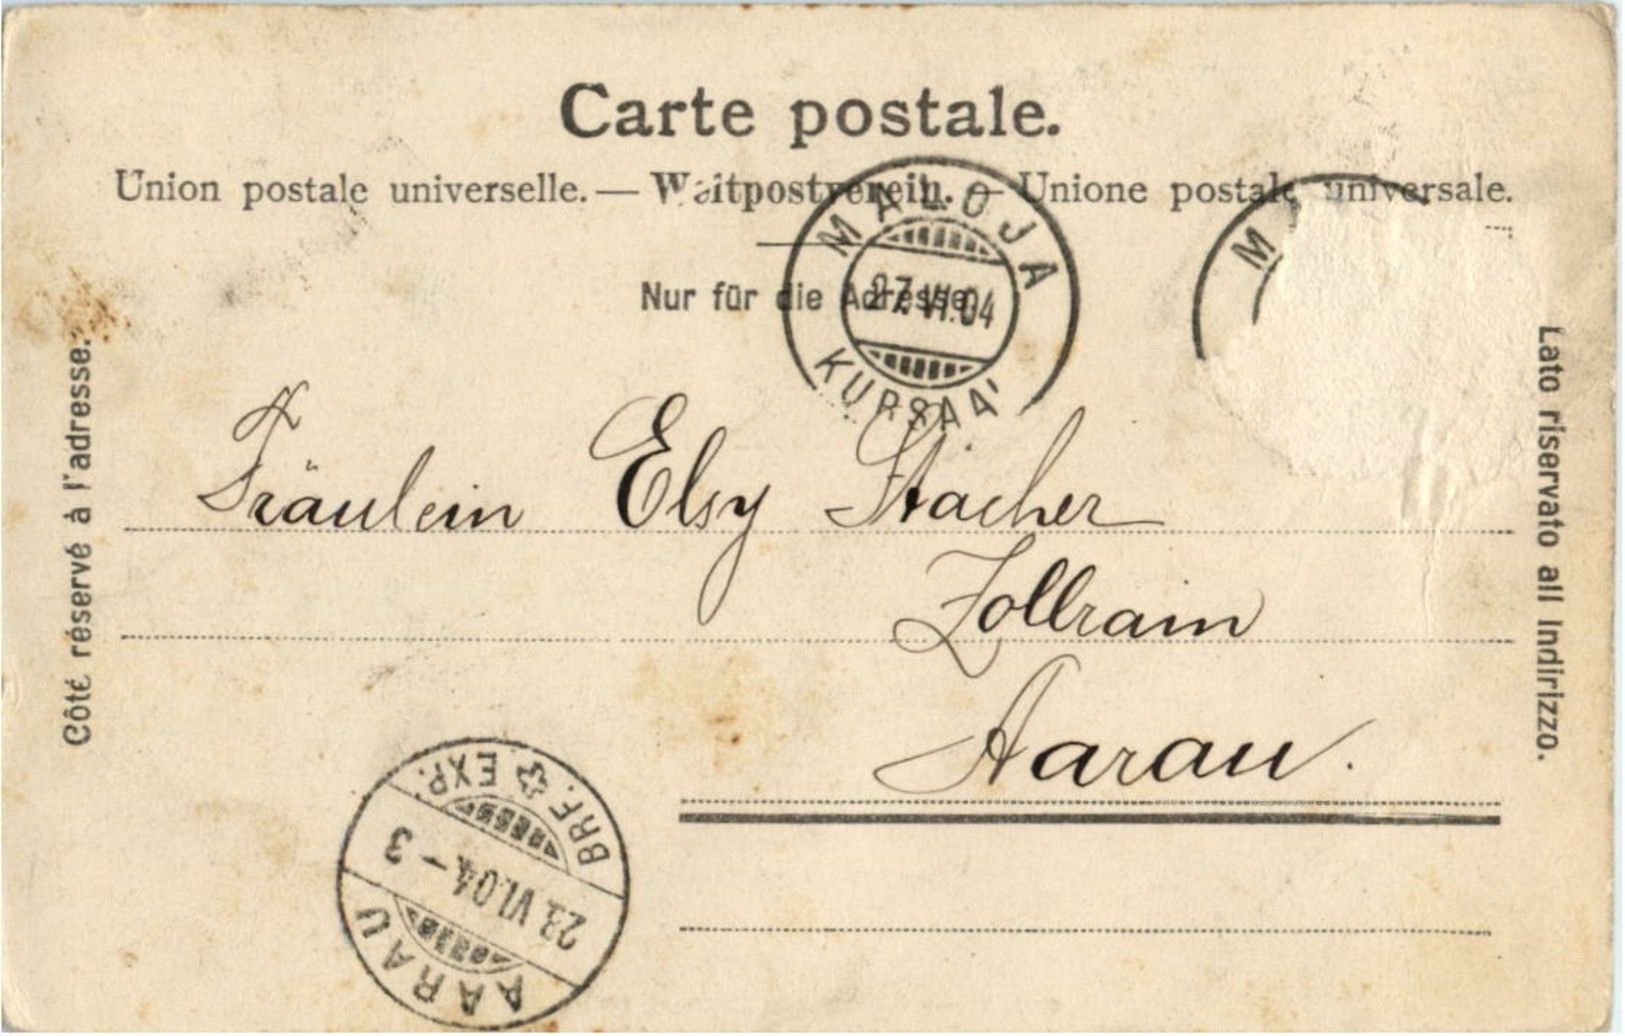 Carte postale.
Union postale universelle. — Weltpostverein. — Unione postale universale.
Nur für die Adresse.
MALOJA
27.VI.04
KURSAAL
M
Côté réservé à l'adresse.
Lato riservato all Indirizzo.
Fräulein Elsy Stacher
Zollrain
Aarau.
BRF. EXP.
23.VI.04.-3
AARAU